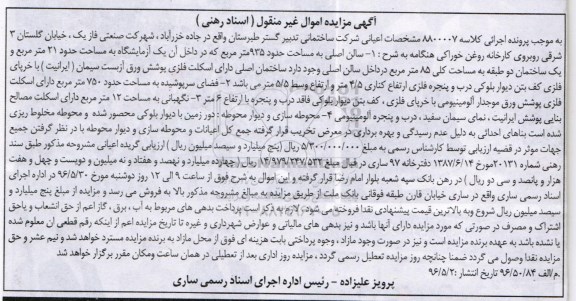 آگهی مزایده اموال غیر منقول ( اسناد رهنی )
به موجب پرونده اجرائی کلاسه ۸۸۰۰۰۷ مشخصات اعیانی شرکت ساختمانی تدبیر گستر طبرستان واقع در جاده خزرآباد ، شهرکت صنعتی فاز یک ، خیابان گلستان ۳
شرقی روبروی کارخانه روغن خوراکی هنگامه به شرح : ۱- سالن اصلی به مساحت حدود ۹۳۵متر مربع که در داخل آن یک آزمایشگاه به مساحت حدود ۲۱ متر مربع و
یک ساختمان دو طبقه به مساحت کلی ۸۵ متر مربع درداخل سالن اصلی وجود دارد ساختمان اصلی دارای اسکلت فلزی پوشش ورق آزبست سیمان ( ایرانیت ) با خرپای
فلزی کف بتن دیوار بلوکی درب و پنجره فلزی ارتفاع کناری ۴/۵ م و ارتفاع وسط ۵/۵ متر می باشد ۲- فضای سرپوشیده به مساحت حدود ۷۵۰ متر مربع دارای اسکلت
فلزی پوشش ورق موجدار آلومینیومی با خرپای فلزی ، کف بتن دیوار بلوکی فاقد درب و پنجره با ارتفاع ۶ متر ۳- نگهبانی به مساحت ۱۲ متر مربع دارای اسکلت مصالح
بنایی پوشش ایرانیت ، نمای سیمان سفید ، درب و پنجره آلومینیومی ۴- محوطه سازی و دیوار محوطه : دور زمین با دیوار بلوکی محصور شده و محوطه مخلوط ریزی
شده است بناهای احداثی به دلیل عدم رسیدگی و بهره برداری در معرض تخریب قرار گرفته جمع کل اعیانات و محوطه سازی و دیوار محوطه با در نظر گرفتن جمیع
جهات موثر در قضیه ارزیابی توسط کارشناس رسمی به مبلغ ۵/۳۰۰/۰۰۰/۰۰۰ ریال (پنج میلیارد و سیصد میلیون ریال ) ارزیابی گردیده اعیانی مشروحه مذکور طبق سند
رهنی شماره ۲۰۱۳۱مورخ ۱۳۸۷/۶/۱۴ دفترخانه ۹۷ ساری در قبال مبلغ ۱۴/۹۷۹/۲۴۷/۵۳۲ ریال (چهارده میلیارد و نهصد و هفتاد و نه میلیون و دویست و چهل و هفت
هزار و پانصد و سی دو ریال ) در رهن بانک سپه شعبه بلوار امام رضا قرار گرفته و این اموال به شرح فوق از ساعت ۹ الی ۱۲ روز دوشنبه مورخ ۹۶/۵/۳۰ در اداره اجرای
اسناد رسمی ساری واقع در ساری خیابان قارن طبقه فوقانی بانک ملت از طریق مزایده به مبالغ مشروحه مذکور بالا به فروش می رسد و مزایده از مبلغ پنج میلیارد و
سیصد میلیون ریال شروع وبه بالاترین قیمت پیشنهادی نقدا فروخته می شود. لازم به ذکر است پرداخت بدهی های مربوط به آب ، برق ، گاز اعم از حق انشعاب و یاحق
اشتراک و مصرف در صورتی که مورد مزایده دارای آنها باشد و نیز بدهی های مالیاتی و عوارض شهرداری و غیره تا تاریخ مزایده اعم از اینکه رقم قطعی ان معلوم شده
یا نشده باشد به عهده برنده مزایده است و نیز در صورت وجود مازاد ، وجوه پرداختی بابت هزینه ای فوق از محل مازاد به برنده مزایده مسترد خواهد شد و نیم عشر و حق
مزایده نقدا وصول می گردد ضمنا چنانچه روز مزایده تعطیل رسمی گردد ، مزایده روز اداری بعد از تعطیلی در همان ساعت ومکان مقرر برگزار خواهد شد
.م/الف ۹۶/۵۰/۸۴ تاریخ انتشار :۹۶/۵/۲
پرویز علیزاده – رئیس اداره اجرای اسناد رسمی ساری